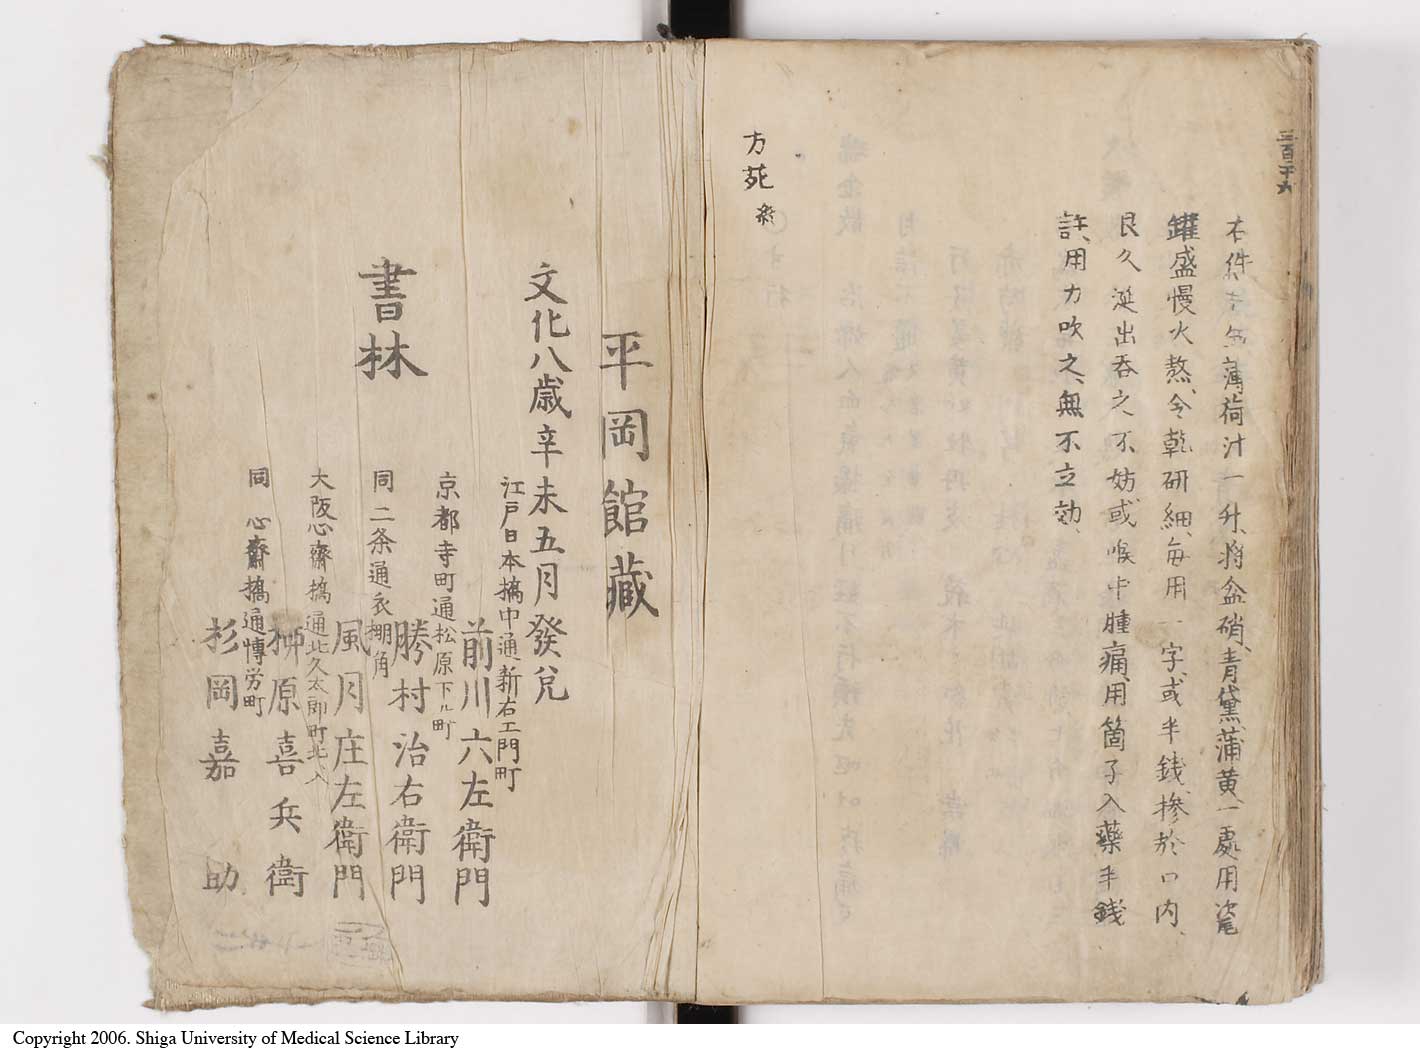 三百二十九
右件先知薄荷汁一升、将盆硝、青黛、蒲黄、一處用瓷
罐盛慢火熬、令乾研細、毎用一字、或半銭、摻於口内、
良久涎出吞之不妨或喉中腫痛、用箇子入藥半銭
許、用力吹之、無不立効、
方苑終
平岡館藏
文化八歳辛未五月發兌
江戸日本橋中通新右エ門町
前川六左衛門
京都寺町通松原下ル町
勝村治右衛門
同二条通衣棚角
風月庄左衛門
書林
大阪心齋橋通北久太郎町北ヘ入
栁原喜兵衛
同心齋橋通博労町
杉岡嘉助
Copyright 2006. Shiga University of Medical Science Library